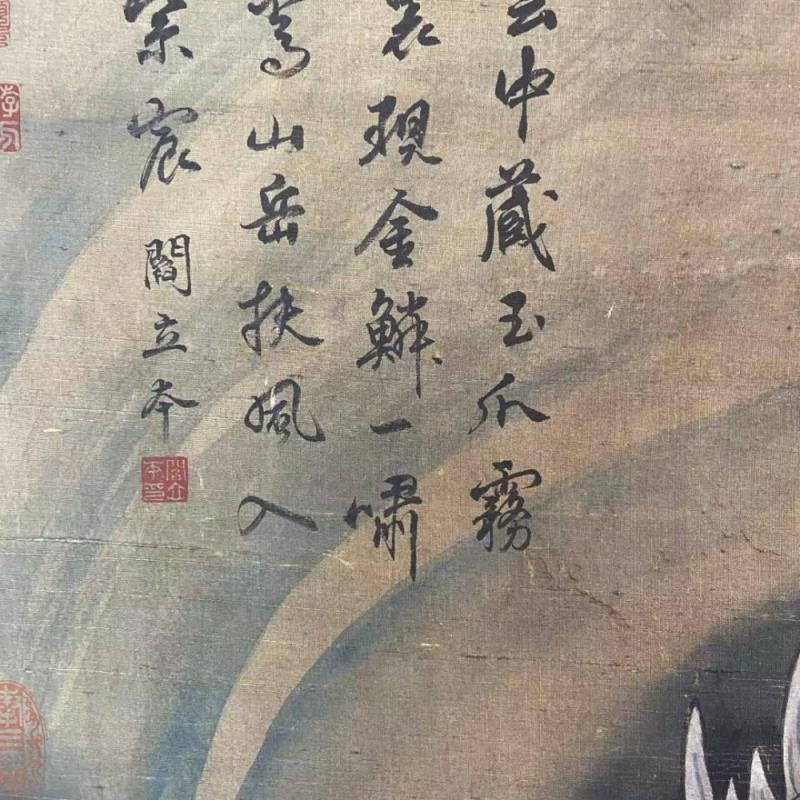 中藏玉爪霧
現金鱗一嘯
山岳扶風入
宸
閻立本
閻立本印